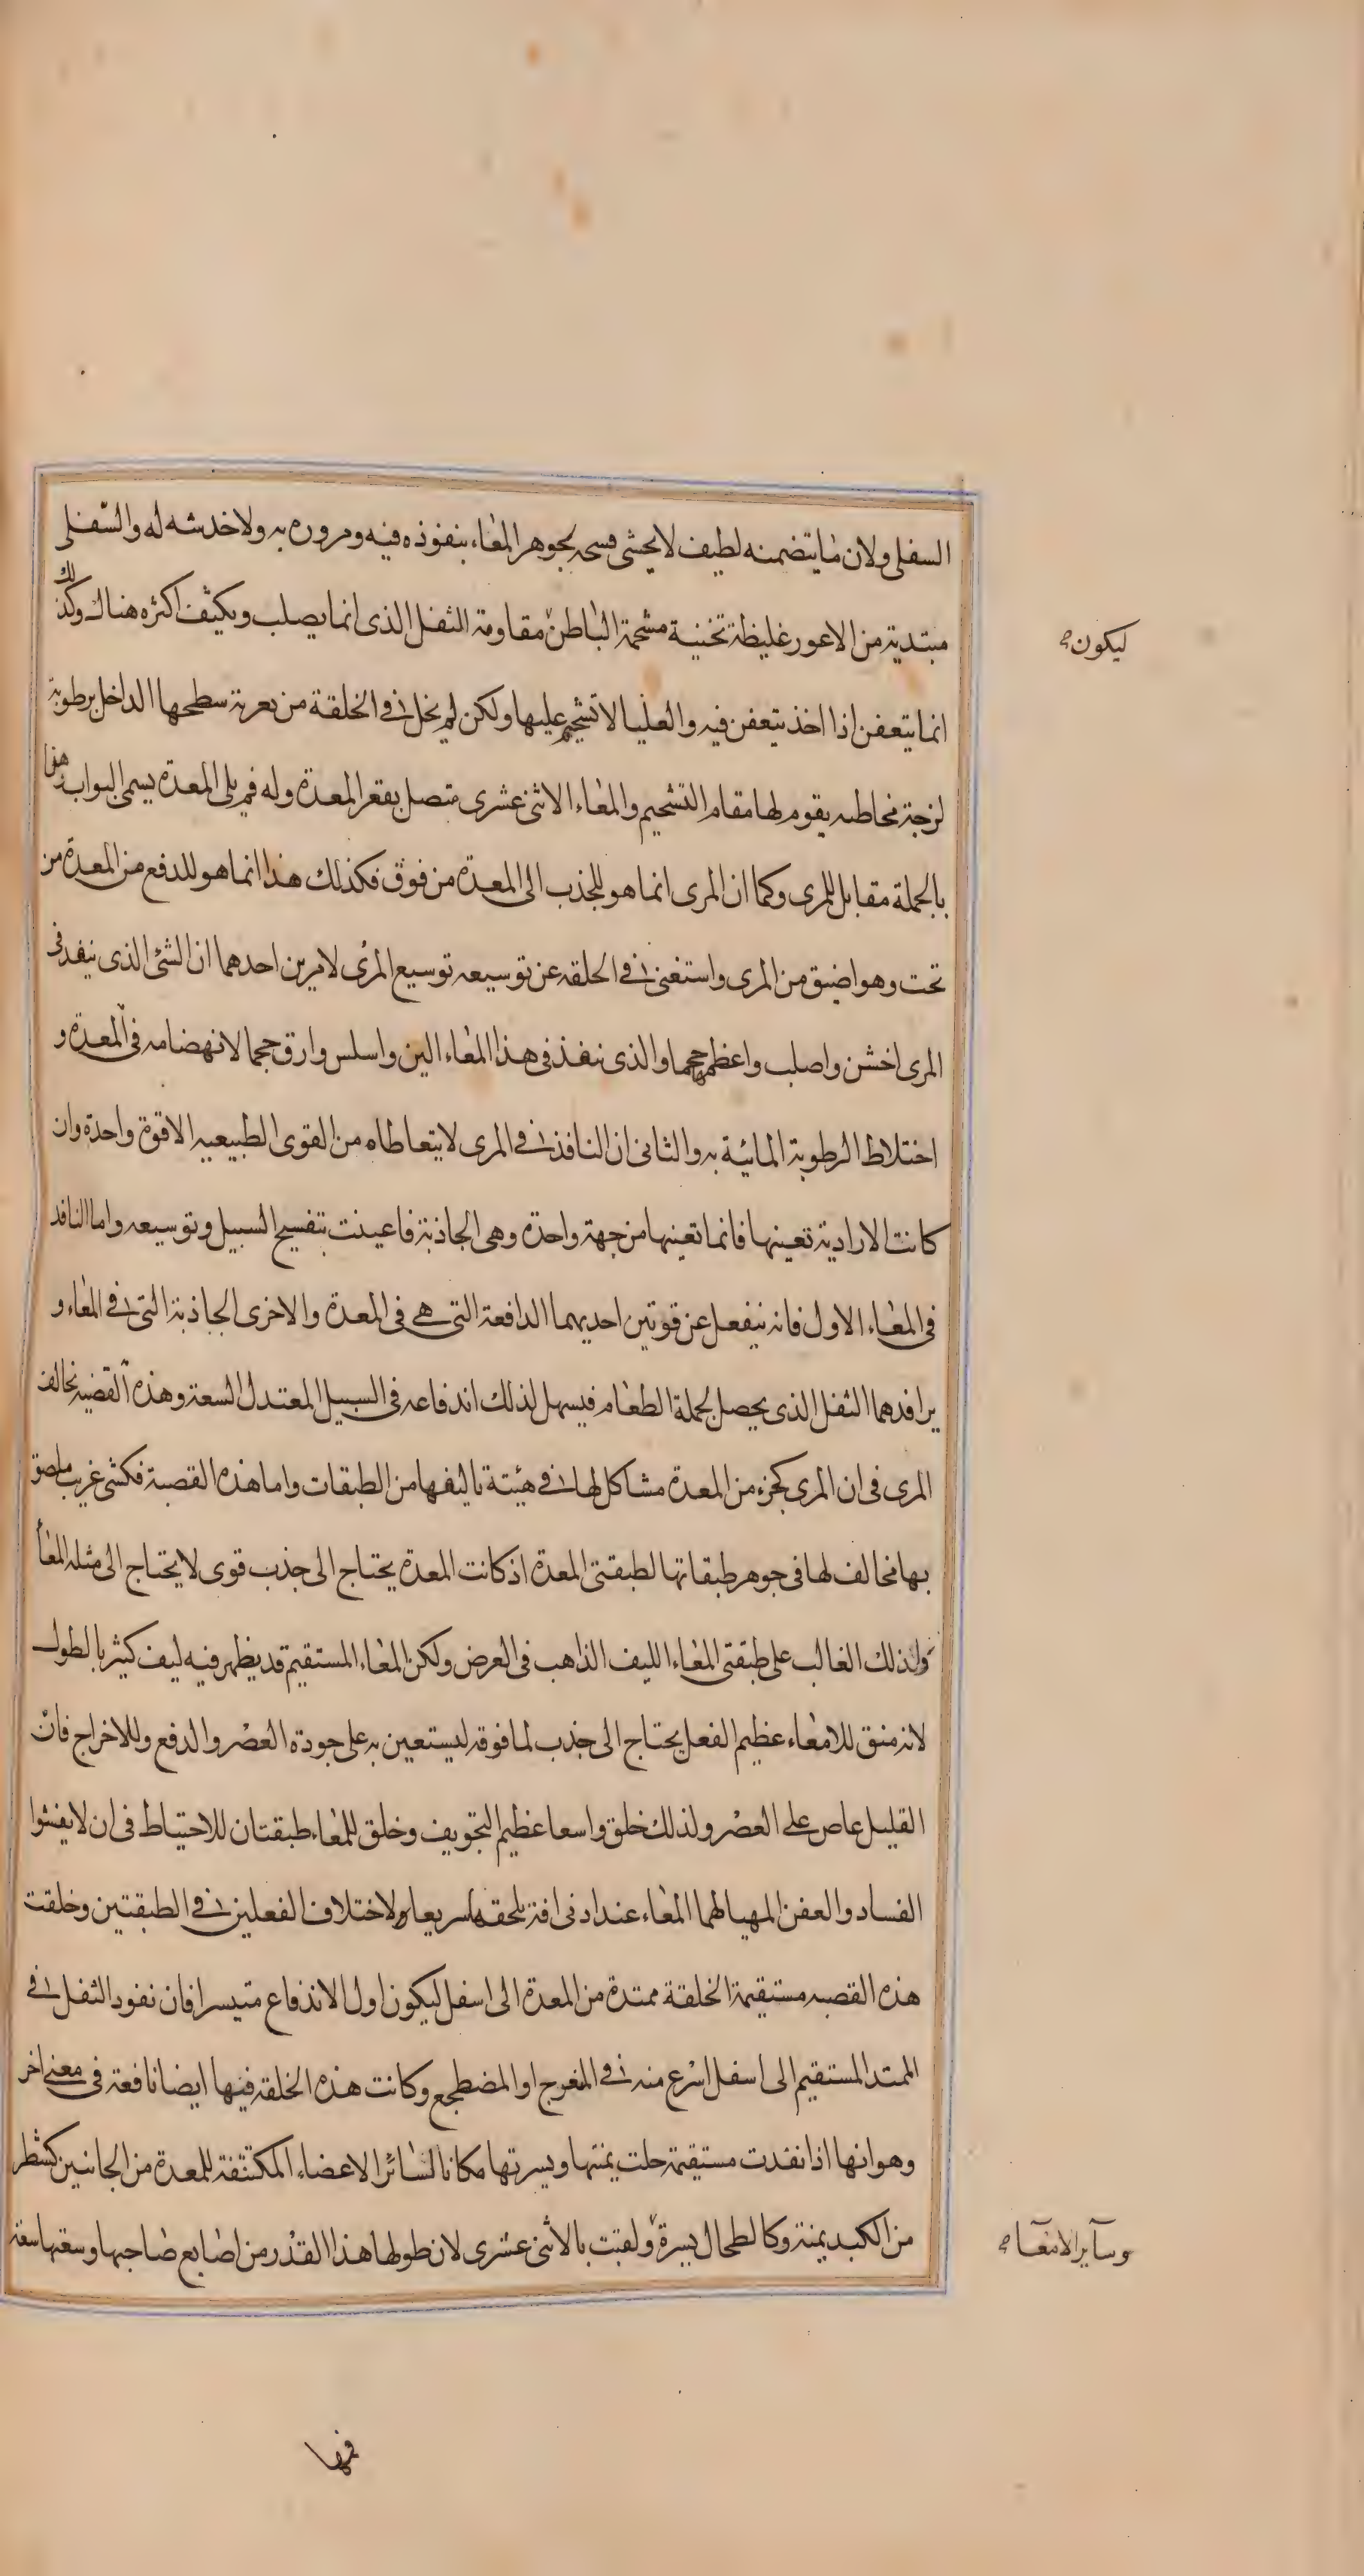 السفلى ولان ما يتضمنه لطيف لا يخشى فسحه لجوهر المعاء بنفوذه فيه ومروره به ولا خدشه له والسفلى
مبتدية من الاعور غليظة ثخنية مشحمة الباطن مقاومة الثفل الذى انما يصلب ويكثف اكثره هناك وكذلك
ليكون صح
انما يتعفن اذا اخذ يتعفن فيه والعليا لا تشحم عليها ولكن لم يخل فى الخلقة من تعرية سطحها الداخل برطوبة
لزجة مخاطيه يقوم لها مقام التشحيم والمعاء الاثنى عشرى متصل بقعر المعدة وله فم يلى المعدة يسمى البواب وهذا
بالجملة مقابل للمرى وكما ان المرى انما هو للجذب الى المعدة من فوق فكذلك هذا انما هو للدفع من المعدة من
تحت وهو اضيق من المرى واستغنى فى الخلقه عن توسيعه توسيع المرى لامرين احدهما ان الشئ الذى ينفد فى
المرى اخشن واصلب واعظم حجما والذى ينفذ فى هذا المعاء الين واسلس وارق حجما لانهضامه فى المعدة و
اختلاط الرطوبة المائية به والثانى ان النافذ فى المرى لا يتعاطاه من القوى الطبيعيه الا قوة واحدة وان
كانت الارادية تعينها فانما تعينها من جهة واحدة وهى الجاذبة فاعينت بتفسيح السبيل وتوسيعه واما النافد
فى المعاء الاول فانه ينفعل عن قوتين احديهما الدافعة التى هى فى المعدة والاخرى الجاذبة التى فى المعاء و
يرافدهما الثفل الذى يحصل لجملة الطعام فيسهل لذلك اندفاعه فى السبيل المعتدل السعة وهذه القضيه تخالف
المرى فى ان المرى كجزء من المعدة مشاكل لها فى هيئة تاليفها من الطبقات واما هذه القصبة فكشى غريب ملصق
بها مخالف لها فى جوهر طبقاتها لطبقتى المعدة اذ كانت المعدة يحتاج الى جذب قوى لا يحتاج الى مثله المعاء
ولذلك الغالب على طبقتى المعاء الليف الذاهب فى العرض ولكن المعاء المستقيم قد يظهر فيه ليف كثير بالطول
لانه منق للامعاء عظيم الفعل يحتاج الى جذب لما فوقه ليستعين به على جودة العصر والدفع وللاخراج فان
القليل عاص على العصر ولذلك خلق واسعا عظيم التجويف وخلق للمعاء طبقتان للاحتياط فى ان لا يفشوا
الفساد والعفن المهيا لهما المعاء عند ادنى افة يلحقها سريعا ولاختلاف الفعلين فى الطبقتين وخلقت
هذه القصبه مستقيمة الخلقة ممتدة من المعدة الى اسفل ليكون اول الاندفاع متيسرا فان نفود الثفل فى
الممتد المستقيم الى اسفل اسرع منه فى المعوج او المضطجع وكانت هذه الخلقه فيها ايضا نافعة فى معنى اخر
وهو انها اذا نفدت مستقيمة خلت يمنتها ويسرتها مكانا لسائر الاعضاء المكتنفة للمعدة من الجانبين كشطر
من الكبد يمنة وكالطحال يسرة ولقبت بالاثنى عشرى لان طولها هذا القدر من اصابع صاحبها وسعتها سعة
وسآير الامعآء صح
فمها